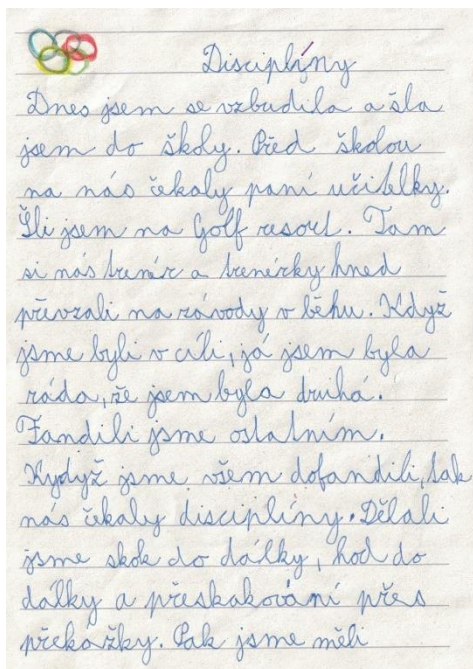 Disciplíny
Dnes jsem se vzbudila a šla
jsem do školy. Před školou
na nás čekaly paní učitelky.
Šli jsem na Golf resort. Tam
si nás trenér a trenérky hned
převzali na závody v běhu. Když
jsme byli v cíli, já jsem byla
ráda, že jsem byla druhá.
Fandili jsme ostatním.
Kydyž jsme všem dofandili, tak
nás čekaly disciplíny. Dělali
jsme skok do dálky, hod do
dálky a přeskakování přes
překážky. Pak jsme měli